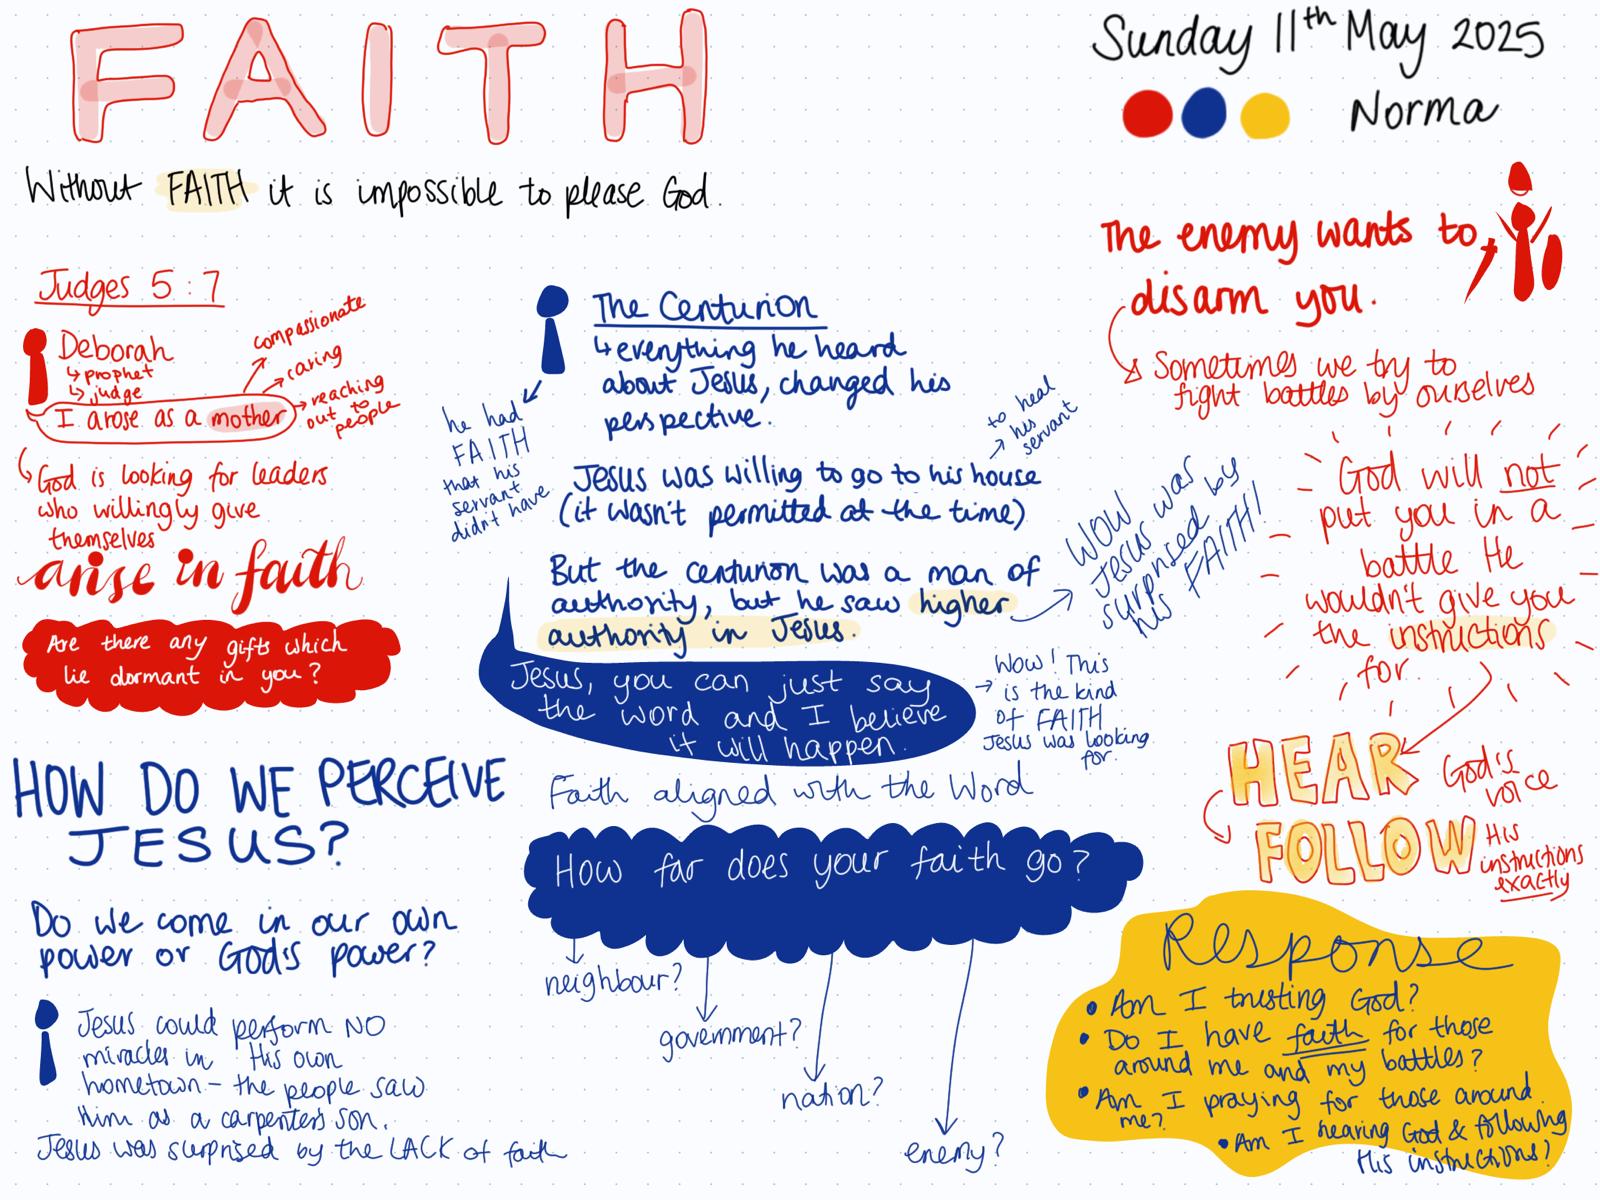 FAITH
Sunday 11th May 2025
Norma
Without FAITH it is impossible to please God.
Judges 5:7
Deborah
↳ prophet
↳ judge
I arose as a mother
compassionate
caring
reaching
out to
people
God is looking for leaders
who willingly give
themselves
arise in faith
Are there any gifts which
lie dormant in you?
HOW DO WE PERCEIVE
JESUS?
Do we come in our own
power or God's power?
Jesus could perform NO
miracles in His own
hometown - the people saw
Him as a carpenter's son.
Jesus was surprised by the LACK of faith
The Centurion
↳ everything he heard
about Jesus, changed his
perspective.
he had
FAITH
that his
servant
didn't have
Jesus was willing to go to his house
(it wasn't permitted at the time)
to heal
his
servant
But the centurion was a man of
authority, but he saw higher
authority in Jesus.
WOW
Jesus was
surprised by
his FAITH!
Jesus, you can just say
the word and I believe
it will happen.
Wow! This
is the kind
of FAITH
Jesus was looking
for.
Faith aligned with the Word
How far does your faith go?
neighbour?
government?
nation?
enemy?
The enemy wants to
disarm you.
Sometimes we try to
fight battles by ourselves
God will not
put you in a
battle He
wouldn't give you
the instructions
for.
HEAR God's
voice
FOLLOW His
instructions
exactly
Response
• Am I trusting God?
• Do I have faith for those
around me and my battles?
• Am I praying for those around
me?
• Am I hearing God & following
His instructions?